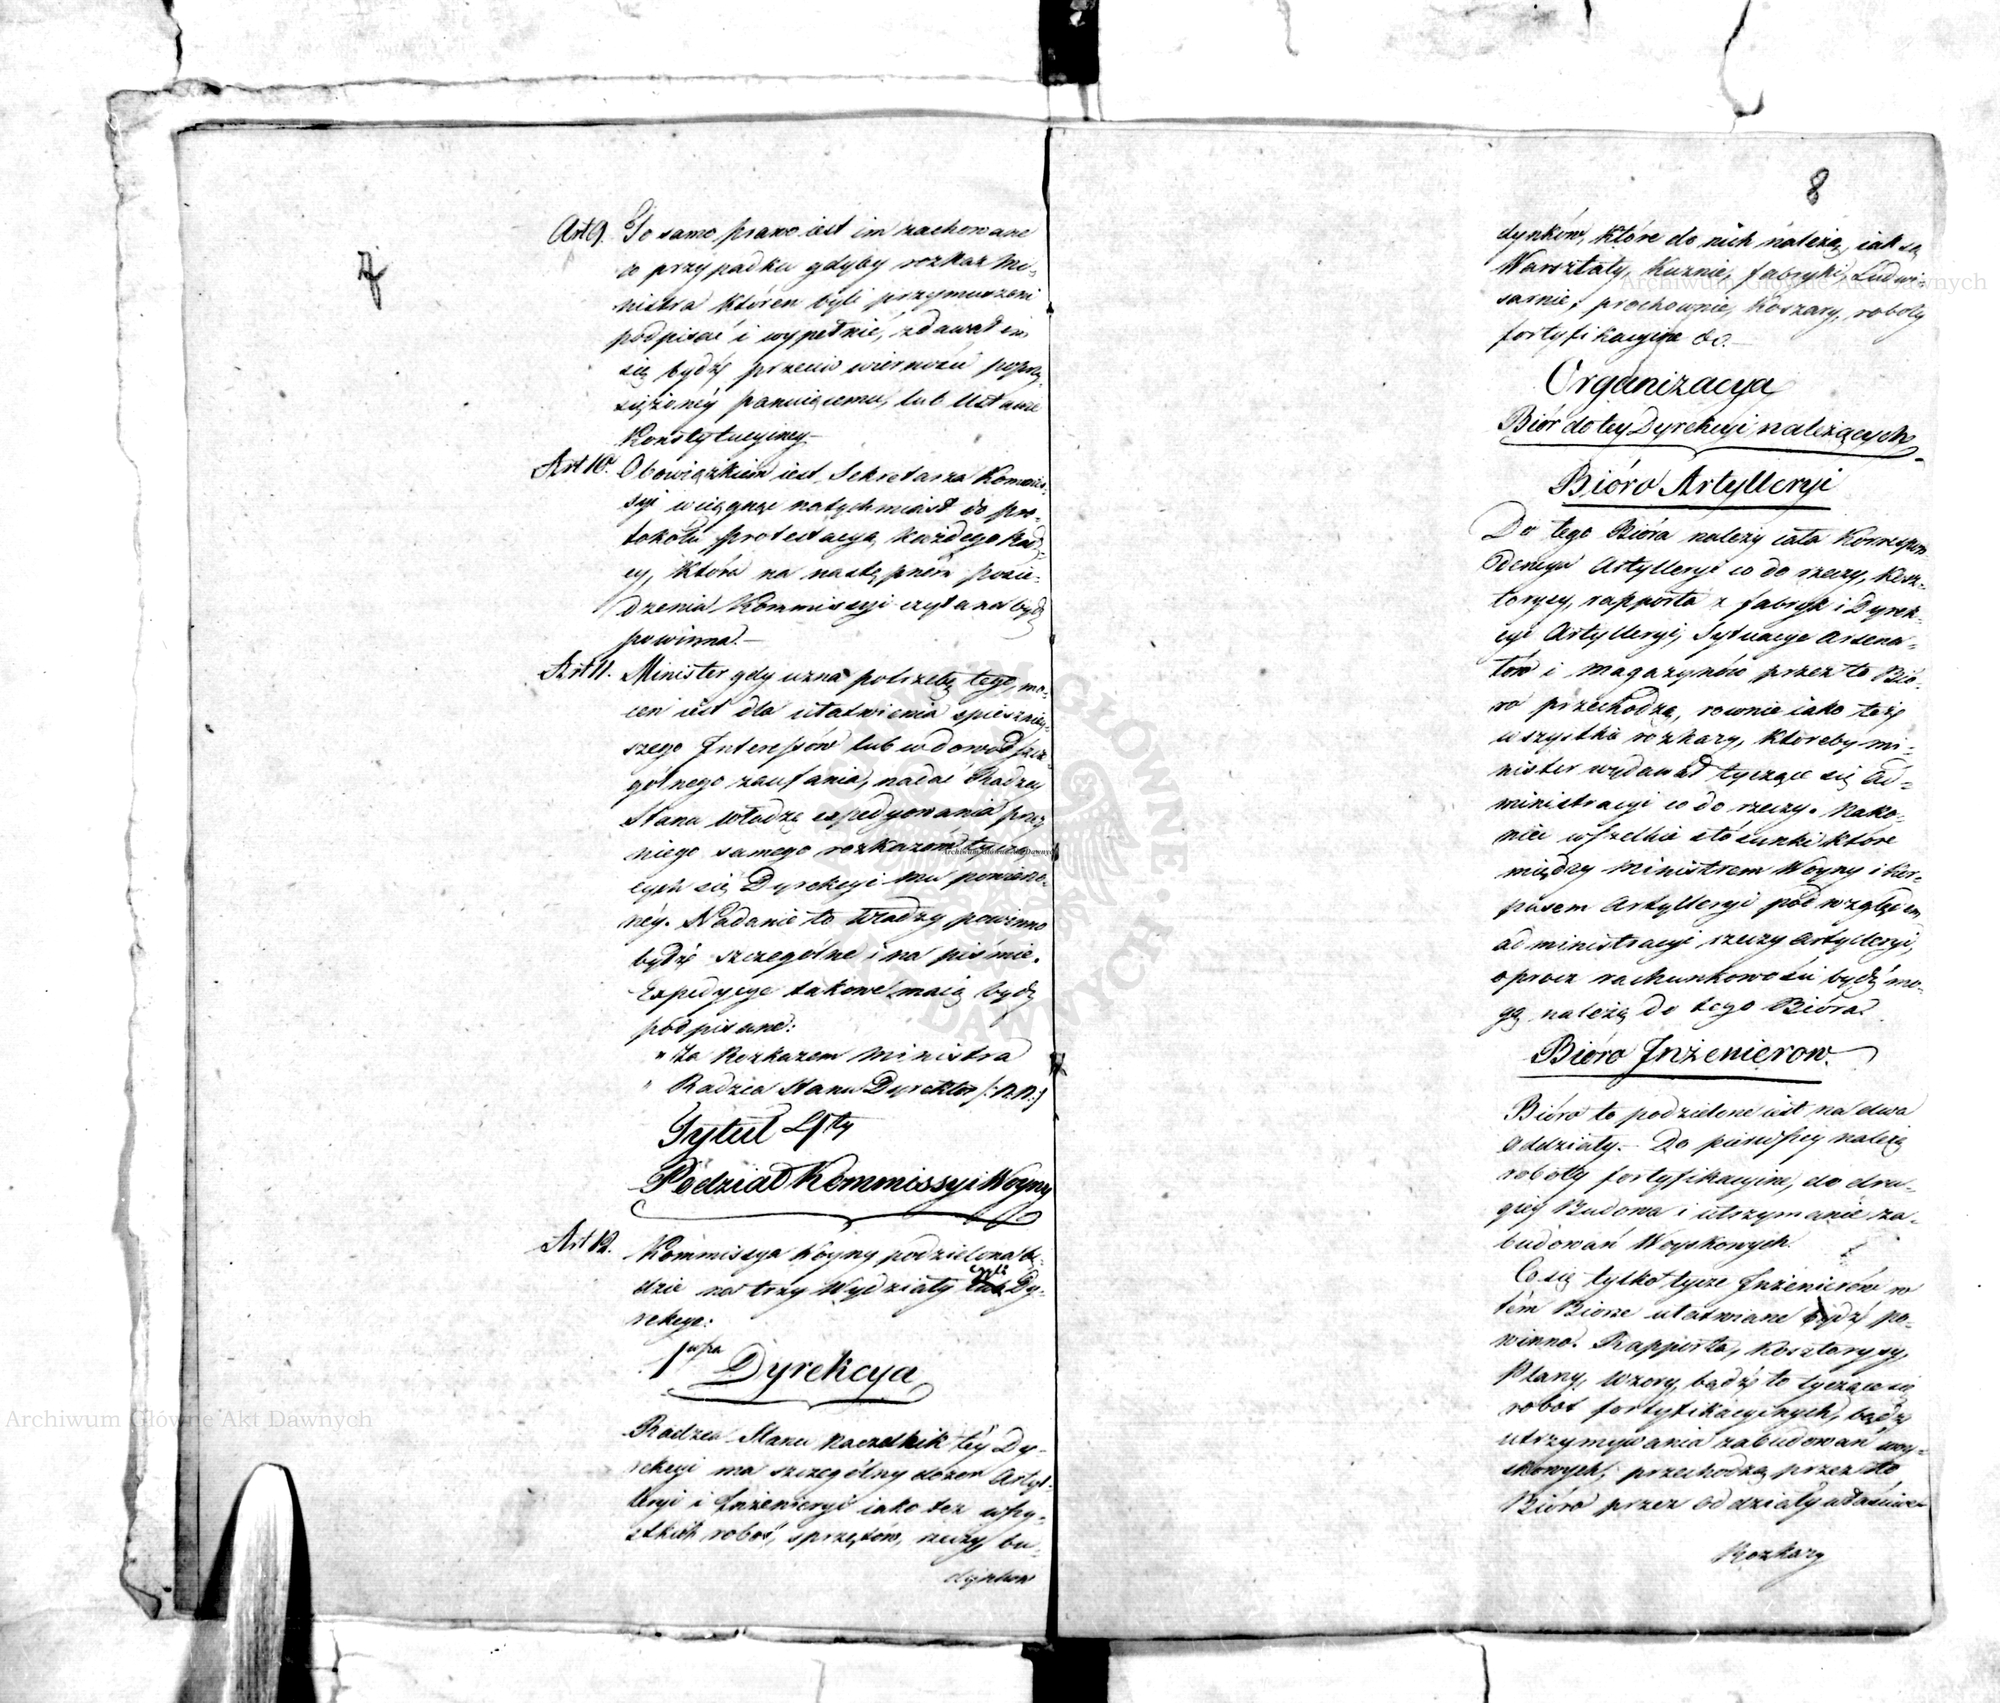 7
Art 9. To samo prawo iest im zachowane
w przypadku gdyby rozkaz Mi-
nistra któren byli przymuszeni
podpisać i wypełnić, zdawał im
się bydź przeciw wierności poprzy-
siężoney panuiącemu, lub Ustawie
Konstytucyiney.—
Art 10. Obowiązkiem iest Sekretarza Kommis-
syi wciągnąć natychmiast do pro-
tokołu protestacyą każdego Rad-
cy, która na następném posie-
dzeniu Kommissyi czytana bydź
powinna.—
Art 11. Minister gdy uzna potrzebę tego, mo-
cen iest dla ułatwienia spieszniey-
szego Interessów lub w dowód szcze-
gólnego zaufania, nadać Radzcy
Stanu władzę expedyowania przez
niego samego rozkazów tyczą-
cych się Dyrekcyi mu powierzo-
néy. Nadanie to władzy powinno
bydź szczególne i na piśmie.
Expedycye takowe maią bydź
podpisane:
" Za Rozkazem Ministra
" Radzca Stanu Dyrektor (:N.N.:)
Tytuł 4ty
Podział Kommissyi Woyny
Art 12. Kommissya Woyny podzielona bę-
dzie na trzy Wydziały czyli Dy-
rekcye:
1wsza Dyrekcya
Radzca Stanu Naczelnik téy Dy-
rekcyi ma szczególny dozór Artyl-
leryi i Inżenieryi iako też wszy-
stkich robót, sprzętów, rzeczy, bu-
dynków
8
dynków, które do nich należą, iak są
Warsztaty, Kuźnie, fabryki, Ludwi-
sarnie, prochownie, Koszary, roboty
fortyfikacyine &c.—
Organizacya
Biór do tey Dyrekcyi należących
Bióro Artylleryi
Do tego Bióra należy cała Korrespon-
dencya Artylleryi co do rzeczy, Kosz-
torysy, rapporta z fabryk i Dyrek-
cyi Artylleryi, Sytuacye Arsena-
łów i Magazynów przez to Bió-
ro przechodzą, rownie iako też
wszystkie rozkazy, któreby Mi-
nister wydawał tyczące się Ad-
ministracyi co do rzeczy. Nako-
niec wszelkie stosunki które
między Ministrem Woyny i Kor-
pusem Artylleryi pod względem
administracyi rzeczy Artylleryi,
oprócz rachunkowości bydź mo-
gą należą do tego Bióra.
Bióro Inżenierow.
Bióro to podzielone iest na dwa
Oddziały.— Do pierwszey należą
roboty fortyfikacyine, do dru-
giey Budowa i utrzymanie za-
budowań Woyskowych.
Co się tylko tycze Inżenierów w
tém Biorze ułatwiane bydź po-
winno. Rapporta, Kosztorysy,
Plany, Wzory, bądź to tyczące się
robot fortyfikacyinych, bądź
utrzymywania zabudowań woy-
skowych, przechodzą przez to
Bióro przez oddziały właściwe
Rozkazy
Archiwum Główne Akt Dawnych
Archiwum Główne Akt Dawnych
Archiwum Główne Akt Dawnych